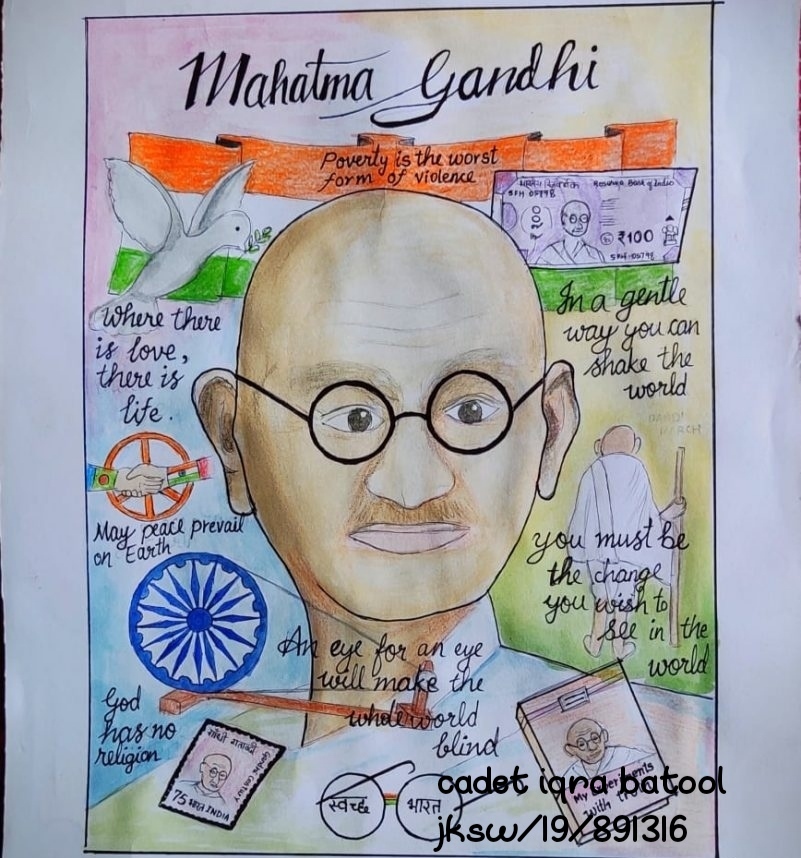 Mahatma Gandhi
Poverty is the worst
form of violence
SFH 05798
₹100
SFH 05798
Where there
is love,
there is
life.
In a gentle
way you can
shake the
world
DANDI
MARCH
May peace prevail
on Earth
you must be
the change
you wish to
see in the
world
An eye for an eye
will make the
whole world
blind
God
has no
religion
गाँधी शताब्दी
75 भारत INDIA
स्वच्छ भारत
My Experiments
with
cadet iqra batool
jksw/19/891316